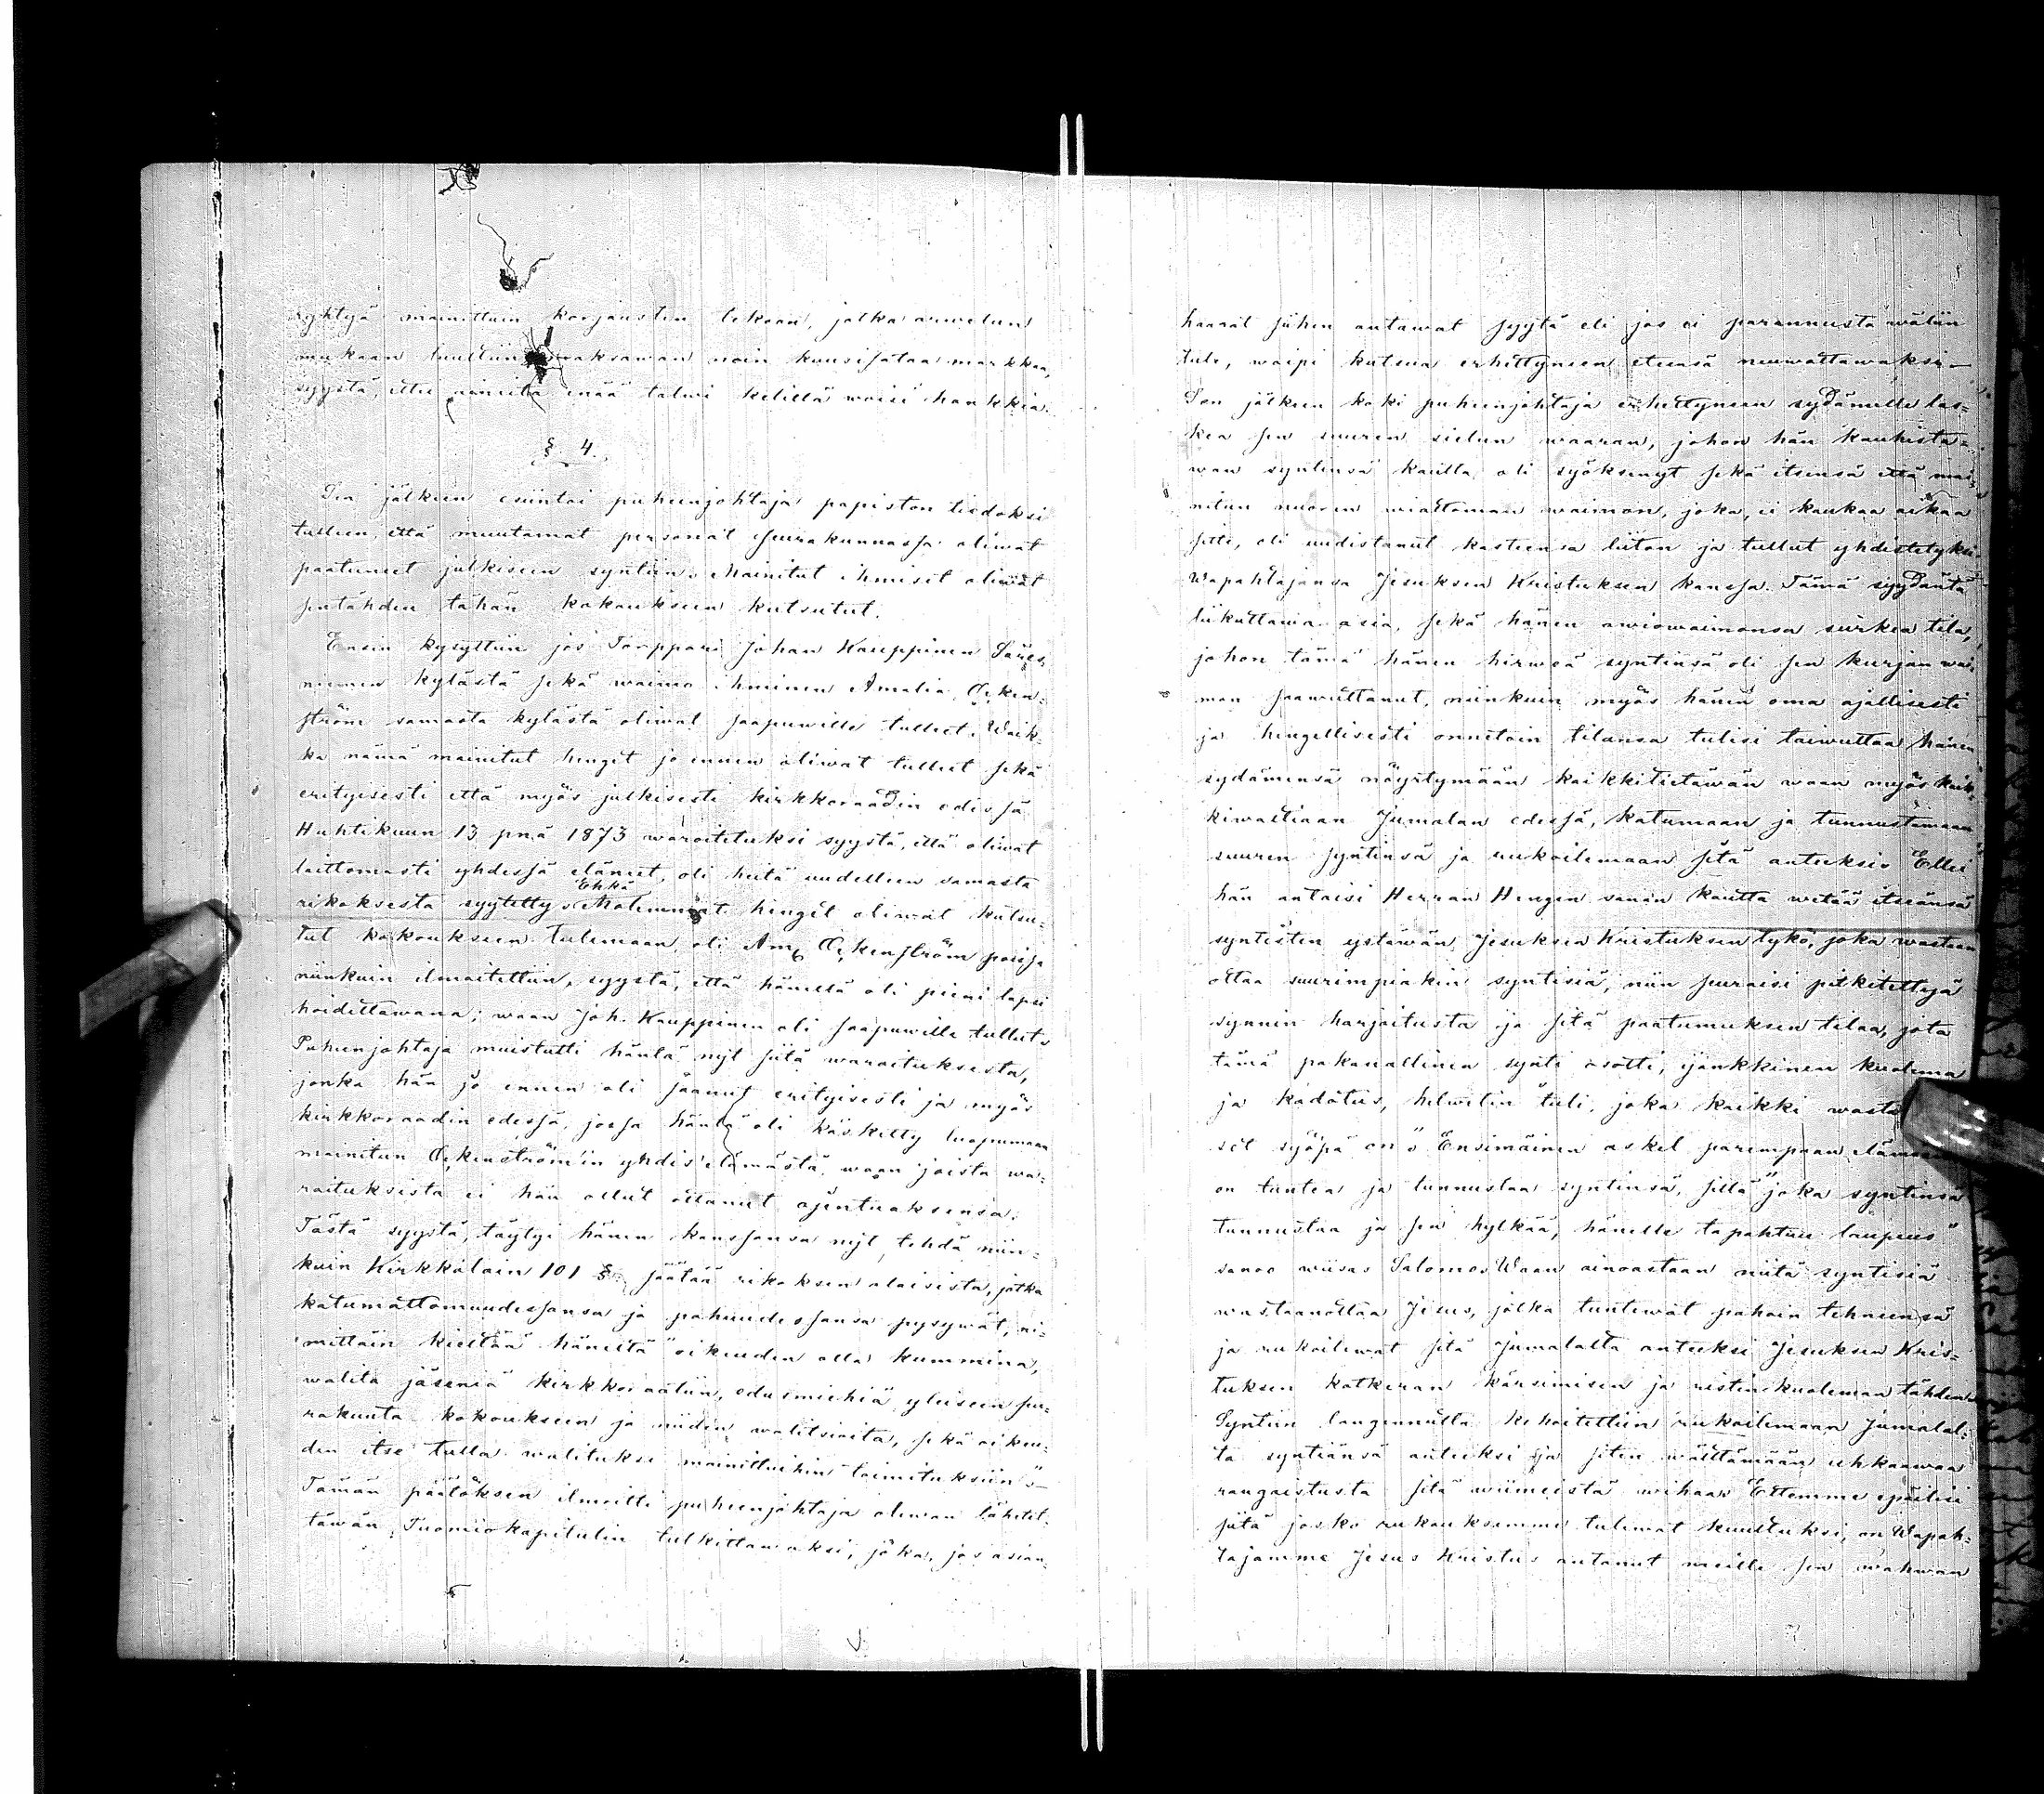 ryhtyä mainittuin korjausten tekoon, jotka arwelun
mukaan luultiin maksawan noin kuusisataa markkaa,
syystä, ettei aineita enää talwi kelillä woisi hankkia.
§. 4.
Sen jälkeen esiintoi puheenjohtaja papiston tiedoksi
tulleen, että muutamat personat seurakunnassa oliwat
paatuneet julkiseen syntiin. Mainitut ihmiset oliwat
sentähden tähän kokoukseen kutsutut.
Ensin kysyttiin jos Torppari Johan Kauppinen
niemen kylästä sekä waimo ihminen Amalia Ocken-
ström samasta kylästä oliwat saapuwille tulleet. Waik-
ka nämä mainitut henget jo ennen oliwat tulleet sekä
erityisesti että myös julkisesti kirkkoraadin edessä
Huhtikuun 13 pnä 1873 waroitetuksi syystä, että oliwat
laittomasti yhdessä eläneet, oli heitä uudelleen samasta
rikoksesta syytetty. Ehkä Molemmat henget oliwat kutsu-
tut kokoukseen tulemaan, oli Am. Ockenström poissa
niinkuin ilmoitettiin, syystä, että hänellä oli pieni lapsi
hoidettawana; waan Joh. Kauppinen oli saapuwille tullut.
Puheenjohtaja muistutti häntä nyt siitä waroituksesta,
jonka hän jo ennen oli saanut erityisesti ja myös
kirkkoraadin edessä, jossa häntä oli käsketty luopumaan
mainitun Ockenström'in yhdis'elämästä, waan joista wa-
roituksista ei hän ollut ottanut ojentuaksensa.
Tästä syystä, täytyi hänen kanssansa nyt tehdä niin-
kuin Kirkkolain 101 § säätää rikoksen alaisista, jotka
katumattomuudessansa ja pahuudessansa pysywät, ni-
mittäin kieltää häneltä "oikeuden olla kummina,
walita jäseniä kirkkoraatiin, edusmiehiä yleiseen seu-
rakunta kokoukseen ja niiden walitsioita, sekä oikeu-
den itse tulla walituksi mainittuihin toimituksiin".
Tämän päätöksen ilmoitti puheenjohtaja olewan lähetet-
täwän Tuomiokapitulin tutkittawaksi, joka, jos asian-
haarat siihen antawat syytä eli jos ei parannusta wäliin
tule, woipi kutsua erhettyneen eteensä neuwottawaksi.
Sen jälkeen koki puheenjohtaja erhettyneen sydämelle las-
kea sen suuren sielun waaran, johon hän kauhista-
wan syntinsä kautta oli syöksenyt sekä itsensä että mai-
nitun nuoren wiattoman waimon, joka, ei kaukaa aikaa
sitte, oli uudistanut kasteensa liiton ja tullut yhdistetyksi
Wapahtajansa Jesuksen Kristuksen kanssa. Tämä syydäntä
liikuttawa asia, sekä hänen awiowaimonsa surkea tila,
johon tämä hänen hirweä syntinsä oli sen kurjan wai-
mon saawuttanut, niinkuin myös hänen oma ajallisesti
ja hengellisesti onnetoin tilansa tulisi taiwuttaa hänen
sydämensä nöyrtymään kaikkitietäwän waan myös kaik-
kiwaltiaan Jumalan edessä, katumaan ja tunnustamaan
suuren syntinsä ja rukoilemaan sitä anteeksi. Ellei
hän antaisi Herran Hengen sanan kautta wetää itseänsä
syntisten ystäwän Jesuksen Kristuksen tykö, joka wastaan
ottaa suurimpiakin syntisiä, niin seuraisi pitkitettyä
synnin harjoitusta ja sitä paatumuksen tilaa, jota
tämä pakanallinen synti osotti, ijankkinen kuolema
ja kadotus, helwetin tuli, joka kaikki
set syöpä on". Ensimäinen askel parempaan
on tuntea ja tunnustaa syntinsä, sillä "joka syntinsä
tunnustaa ja sen hylkää, hänelle tapahtuu laupeus"
sanoo wiisas Salomo. Waan ainoastaan niitä syntisiä
wastaanottaa Jesus, jotka tuntewat pahoin tehneensä
ja rukoilewat sitä Jumalalta anteeksi Jesuksen Kris-
tuksen katkeran kärsimisen ja ristinkuoleman tähden.
Syntiin langennutta kehoitettiin rukoilemaan Jumalal-
ta syntiänsä anteeksi ja siten wälttämään uhkaawaa
rangaistusta sitä wiimeistä wihaa. Ettemme epäilisi
siitä josko rukouksemme tulewat kuulluksi, on Wapah-
tajamme Jesus Kristus antanut meille sen wahwan